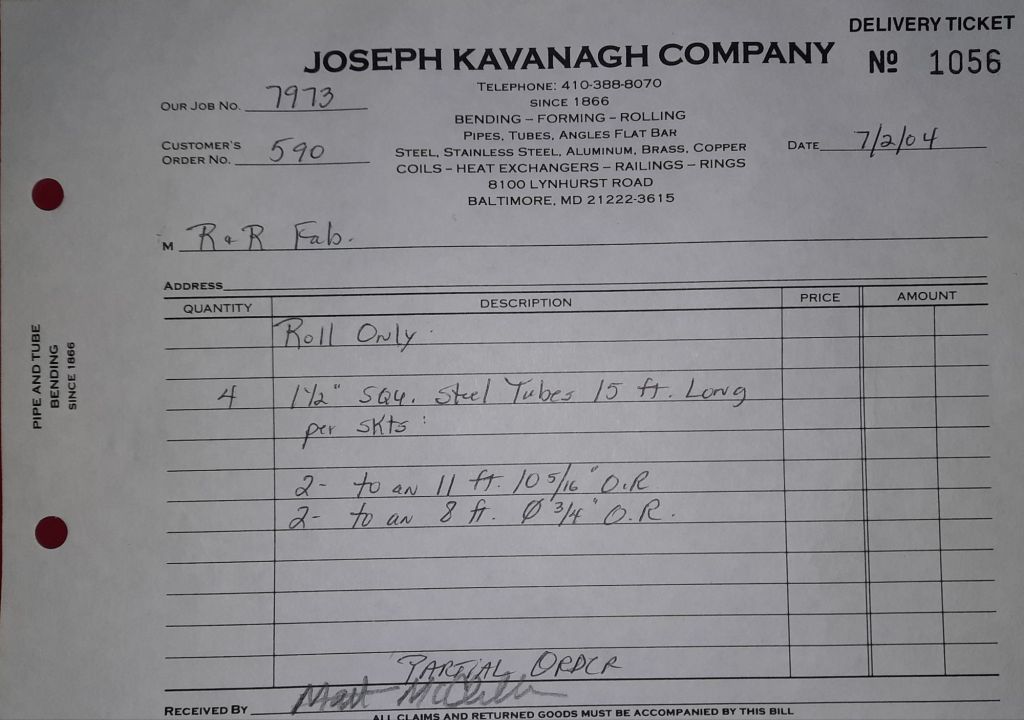 DELIVERY TICKET
JOSEPH KAVANAGH COMPANY
Nº 1056
TELEPHONE: 410-388-8070
SINCE 1866
BENDING – FORMING – ROLLING
PIPES, TUBES, ANGLES FLAT BAR
STEEL, STAINLESS STEEL, ALUMINUM, BRASS, COPPER
COILS – HEAT EXCHANGERS – RAILINGS – RINGS
8100 LYNHURST ROAD
BALTIMORE, MD 21222-3615
OUR JOB NO. 7973
CUSTOMER'S
ORDER NO. 590
DATE 7/2/04
M R & R Fab.
ADDRESS
QUANTITY DESCRIPTION PRICE AMOUNT
Roll Only
4 1 1/2" SQU. Steel Tubes 15 ft. Long
per skts:
2- to an 11 ft. 10 5/16" O.R
2- to an 8 ft. 0 3/4" O.R.
PARTIAL ORDER
RECEIVED BY Matt
ALL CLAIMS AND RETURNED GOODS MUST BE ACCOMPANIED BY THIS BILL
PIPE AND TUBE
BENDING
SINCE 1866